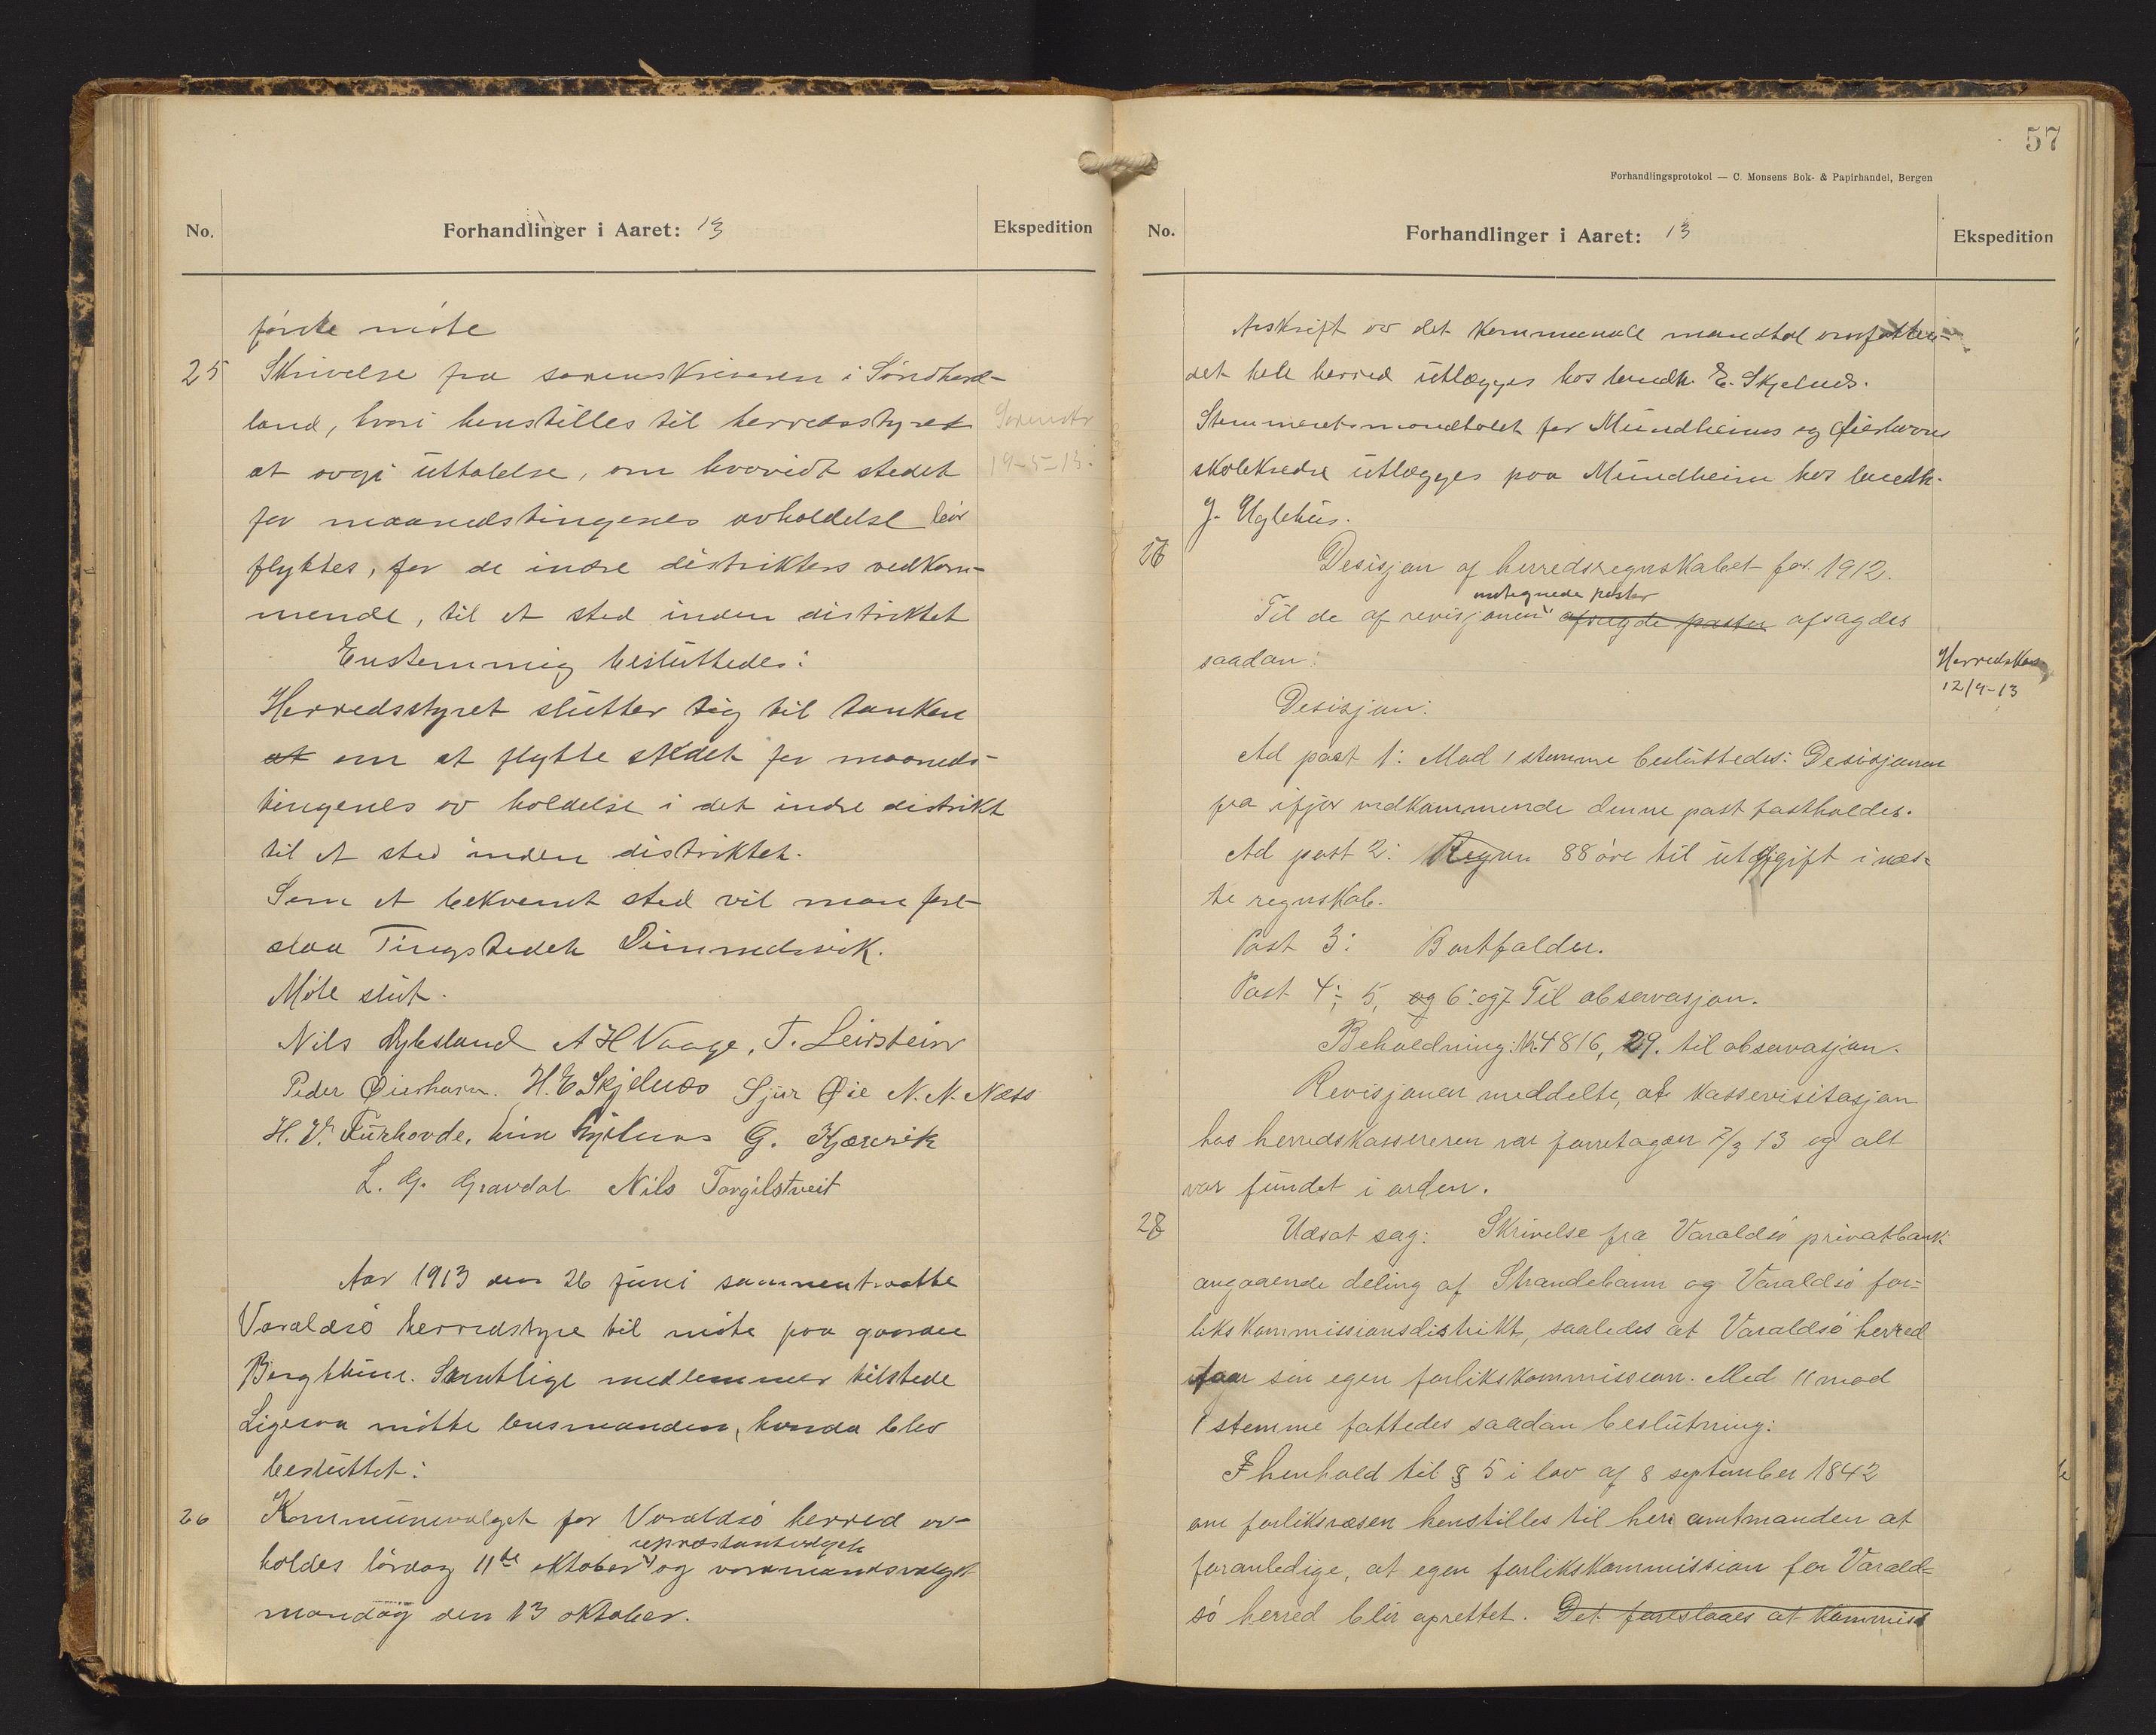 No.
Forhandlinger i Aaret: 13
Ekspedition
förste möte
25 Skrivelse fra sorenskriveren i Söndhord-
land, hvori henstilles til herredsstyret
Sorenskr
at avgi uttalelse, om hvorvidt stedet
19-5-13.
for maanedstingenes avholdelse bör
flyttes, for de indre distrikters vedkom-
mende, til et sted inden distriktet
Enstemmig besluttedes:
Herredsstyret slutter sig til tanken
at om at flytte stedet for maaneds-
tingenes av holdelse i det indre distrikt
til et sted inden distriktet.
Som et bekvemt sted vil man fore-
slaa Tingstedet Dimmelsvik.
Möte slut.
Nils Dybsland A H Vaage, T. Leirstein
Peder Øierhavn. H. E Skjelnæs Sjur Øie N. N. Næss
H. V. Furhovde. G. Kjærevik
L. G. Gravdal Nils Torgilstveit
Aar 1913 den 26 juni sammentraatte
Varaldsö herredstyre til möte paa gaarden
Bergthun. Samtlige medlemmer tilstede
Ligesaa mötte lensmanden, hvorda blev
besluttet:
26 Kommunevalget for Varaldsö herred av-
repræstantvalget
holdes lördag 11te oktober og varamandsvalget
mandag den 13 oktober.
57
Forhandlingsprotokol — C. Monsens Bok- & Papirhandel, Bergen
No.
Forhandlinger i Aaret: 13
Ekspedition
Avskrift av det kommunale mandtal omfatten-
det hele herred utlægges hos landh. E. Skjelnæs.
Stemmeretsmandtalet for Mundheims og Øierhavns
skolekredse utlægges paa Mundheim hos landh.
J. Uglehus.
Desisjon af herredsregnskabet for 1912.
antegnede poster
Til de af revisjonen afsagde poster afsagdes
saadan:
Herredskas
12/9-13
Desisjon:
Ad post 1: Mod 1 stemme besluttedes: Desisjonen
fra ifjor vedkommende denne post fastholdes.
Ad post 2: 88 öre til utgift i næs-
te regnskab.
Post 3: Bortfalder.
Post 4, 5, og 6 og 7 Til observasjon.
Beholdning: Kr. 4816, 29. til observasjon.
Revisjonen meddelte, at kassevisitasjon
hos herredskassereren var foretagen 7/3 13 og alt
var fundet i orden.
28 Udsat sag: Skrivelse fra Varaldsö privatbank
angaaende deling af Strandebarm og Varaldsö for-
likskommissionsdistrikt, saaledes at Varaldsö herred
faar sin egen forlikskommission. Med 11 mod
1 stemme fattedes saadan beslutning:
I henhold til § 5 i lov af 8 september 1842
om forliksvæsen henstilles til herr amtmanden at
foranledige, at egen forlikskommission for Varald-
sö herred blir oprettet. Det foreslaaes at kommiss